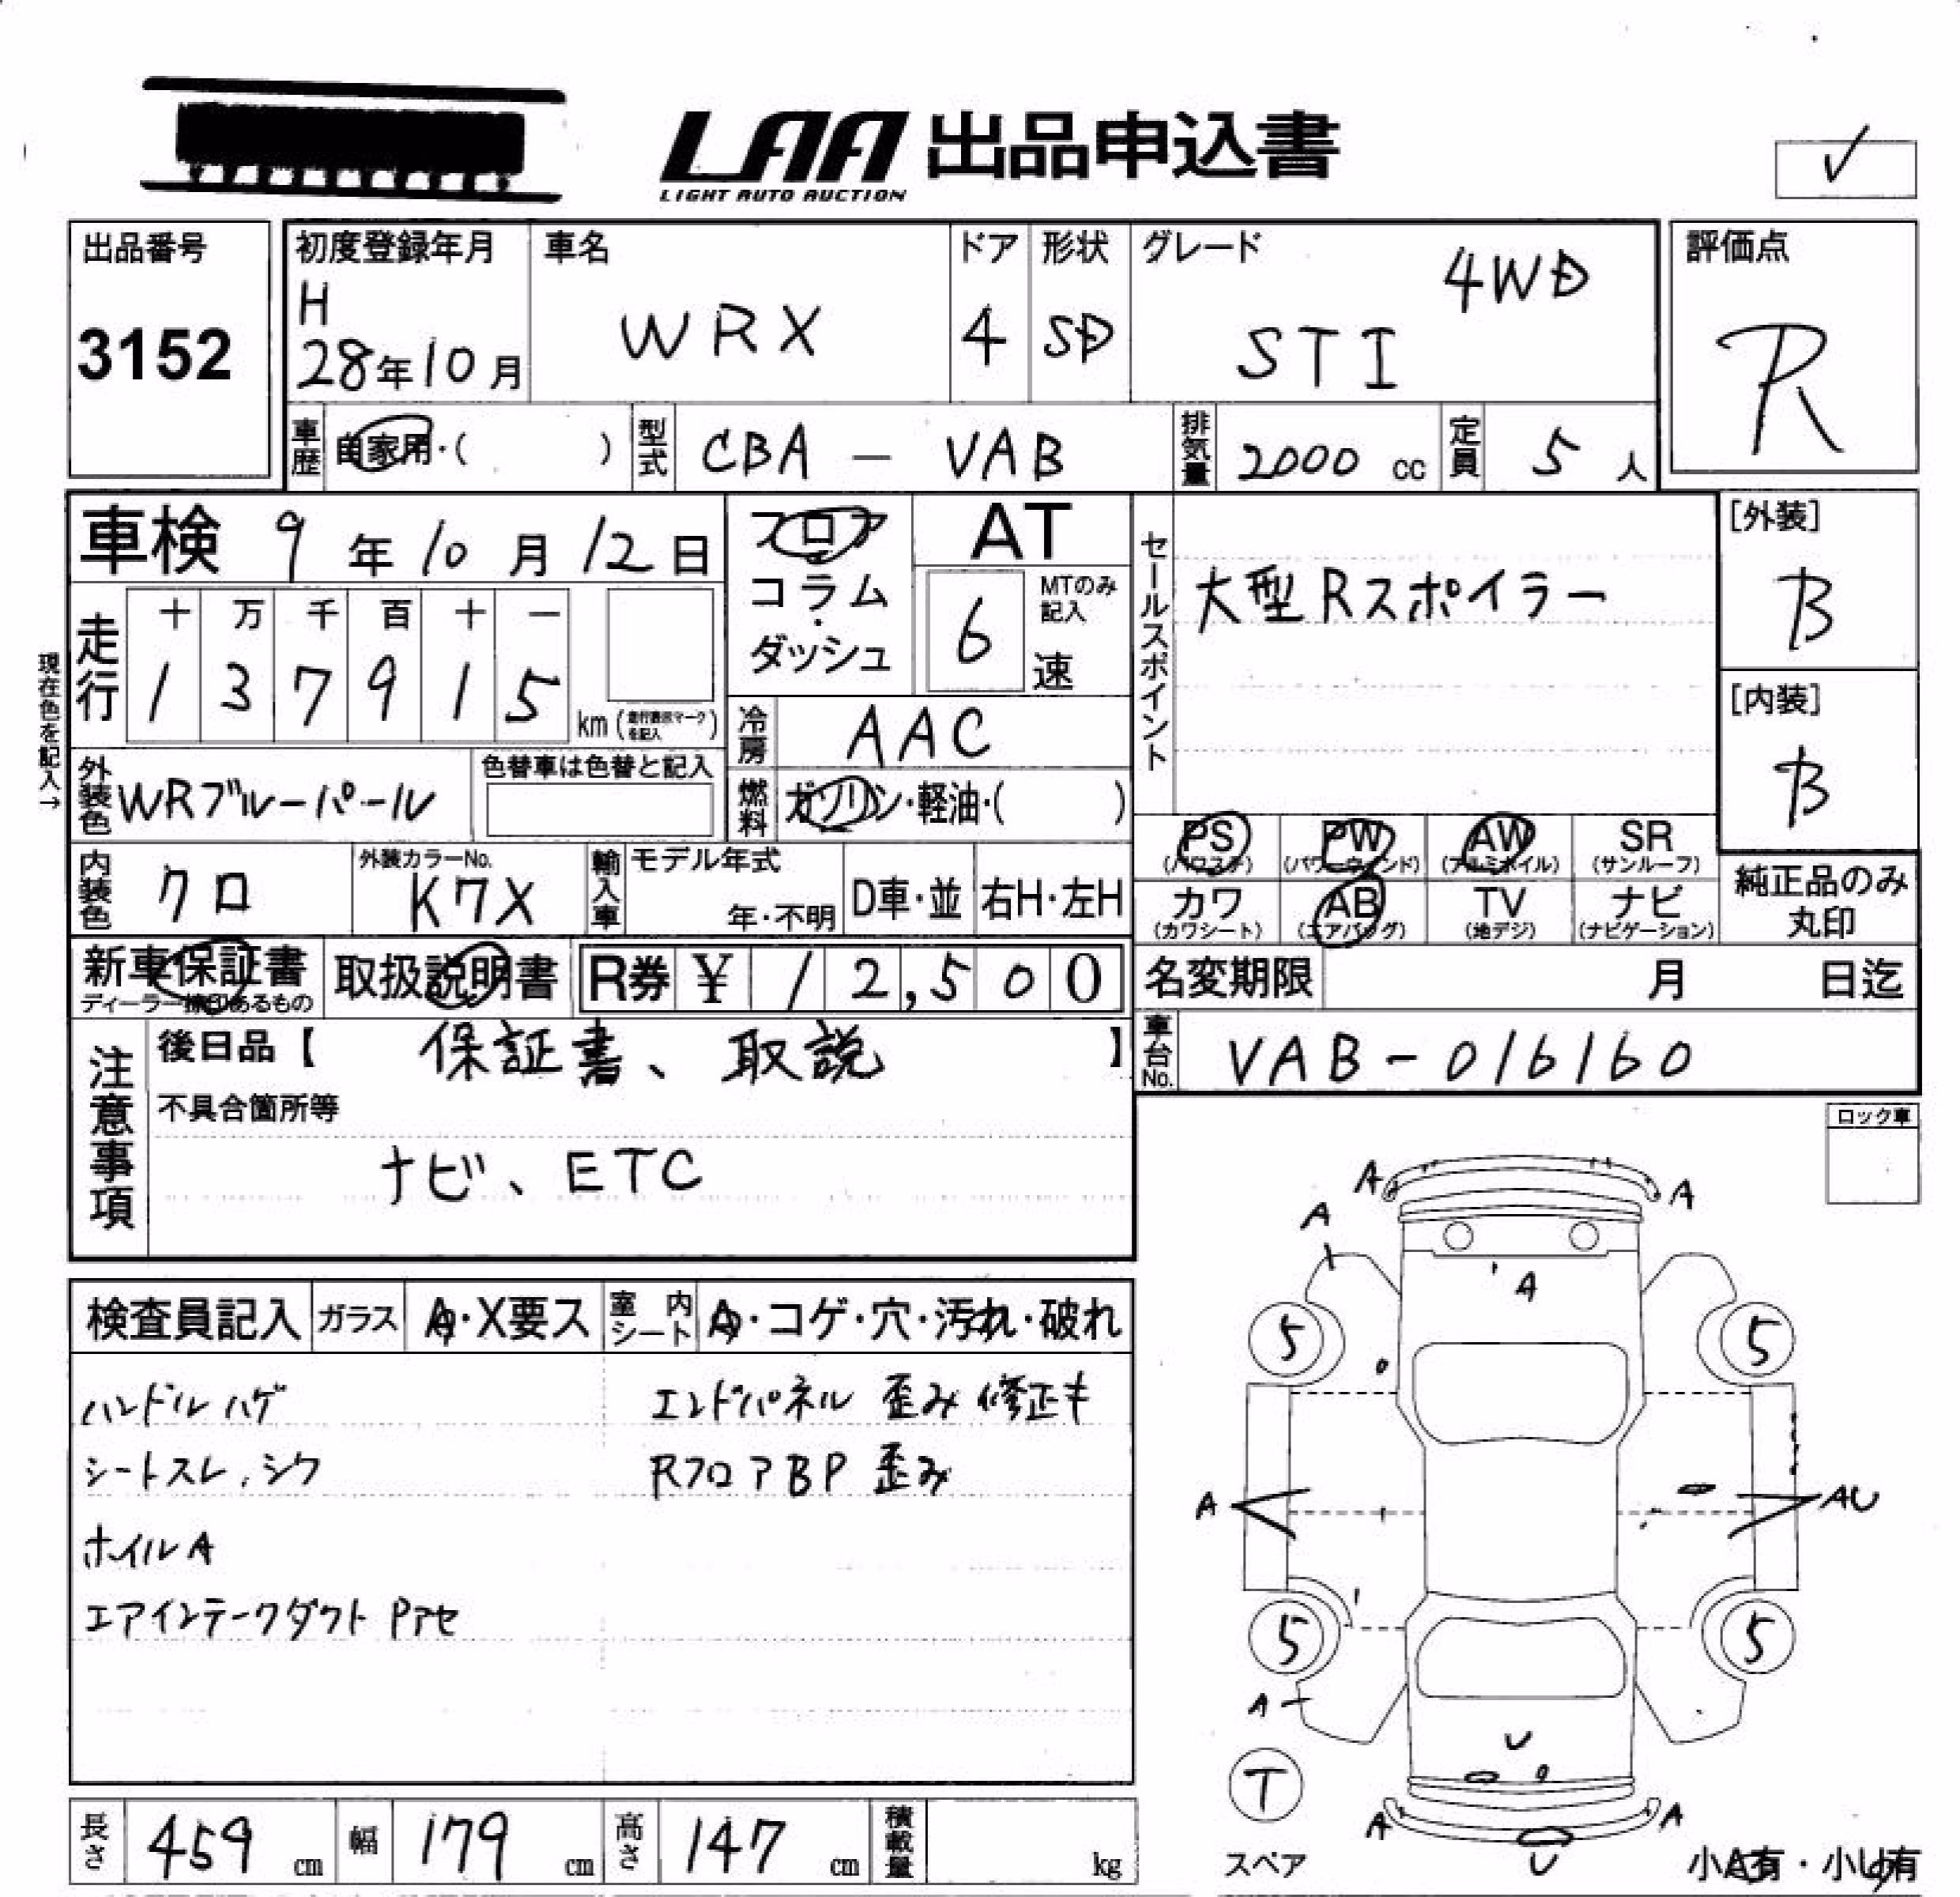 LAA 出品申込書
LIGHT AUTO AUCTION
✓
出品番号
3152
初度登録年月
H
28年10月
車名
WRX
ドア
4
形状
SD
グレード
4WD
STI
評価点
R
車歴
自家用・(　　)
型式
CBA － VAB
排気量
2000 cc
定員
5 人
車検 9年10月12日
フロア
コラム・
ダッシュ
AT
6
MTのみ
記入
速
セールスポイント
大型Rスポイラー
[外装]
B
[内装]
B
現在色を記入→
走行
十 万 千 百 十 一
1 3 7 9 1 5
km(走行表示マークを記入)
冷房
AAC
外装色
WRブルーパール
色替車は色替と記入
燃料
ガソリン・軽油・(　　)
PS
(パワステ)
PW
(パワーウィンド)
AW
(アルミホイル)
SR
(サンルーフ)
カワ
(カワシート)
AB
(エアバッグ)
TV
(地デジ)
ナビ
(ナビゲーション)
純正品のみ
丸印
内装色
クロ
外装カラーNo.
K7X
輸入車
モデル年式
年・不明
D車・並
右H・左H
新車保証書
ディーラー捺印あるもの
取扱説明書
R券 ¥ 12,500
名変期限
月　日迄
車台No.
VAB-016160
注意事項
後日品【 保証書、取説 】
不具合箇所等
ナビ、ETC
ロック車
検査員記入
ガラス
A・X要ス
室内シート
A・コゲ・穴・汚れ・破れ
ハンドルハゲ
シートスレ、シワ
ホイルA
エアインテークダクト Pアセ
エンドパネル 歪み 修正キ
RフロアBP 歪み
A
A
A
A
5
5
A
AU
5
5
A
U
T
スペア
A
A
U
小A有・小U有
長さ
459 cm
幅
179 cm
高さ
147 cm
積載量
kg